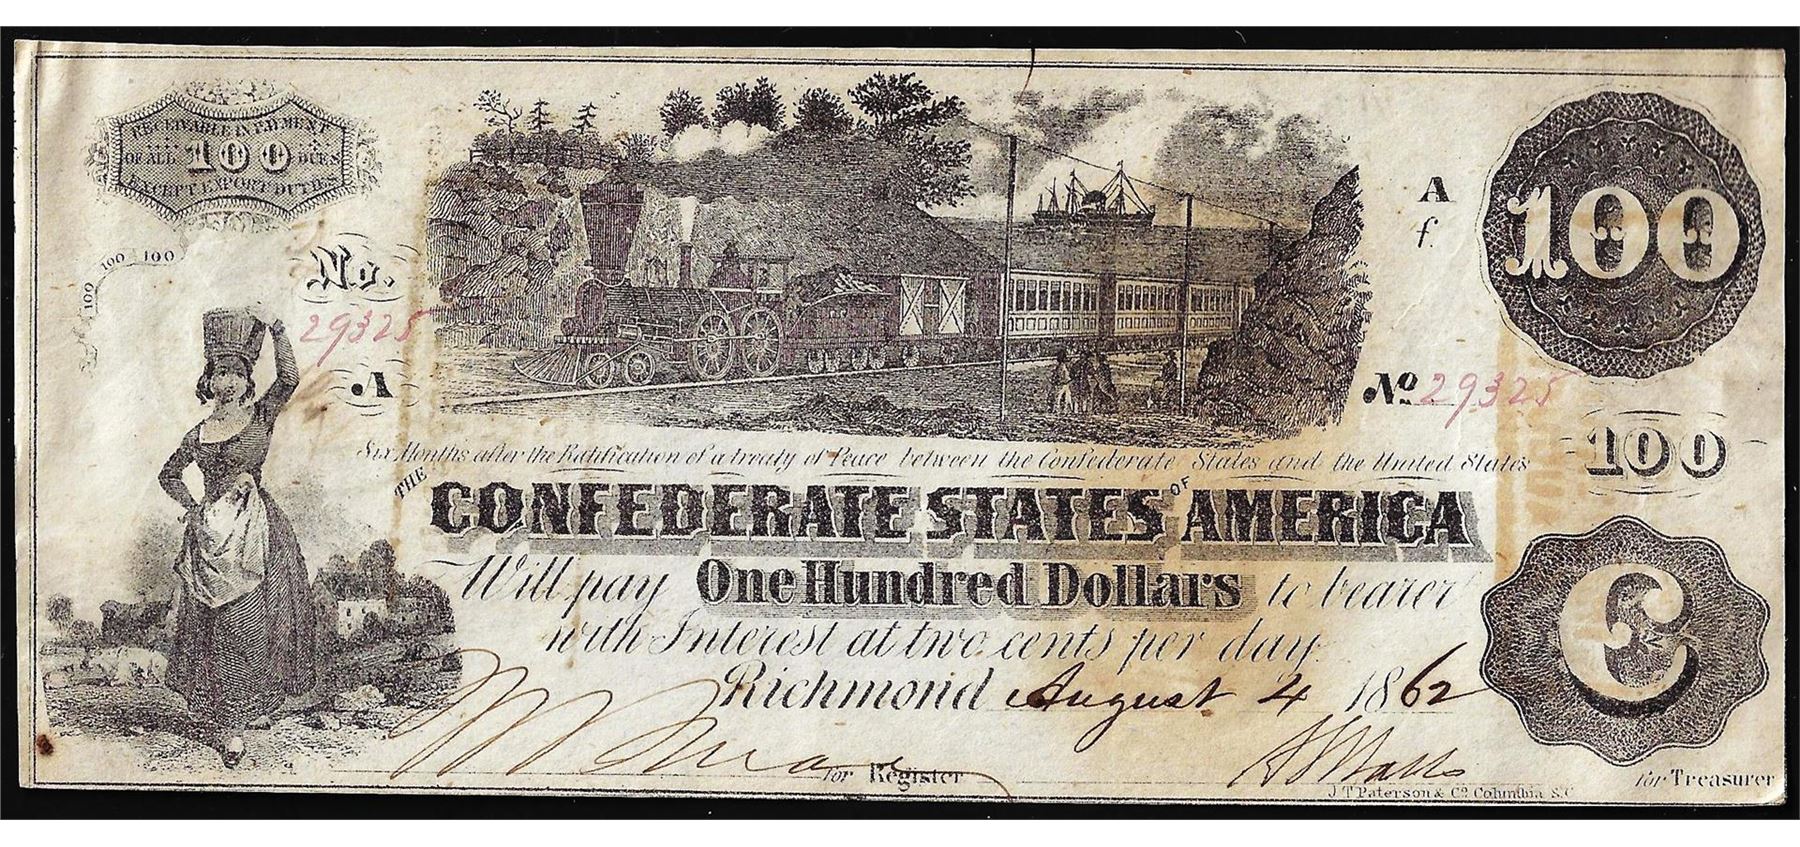 RECEIVABLE IN PAYMENT
OF ALL 100 DUES
EXCEPT EXPORT DUTIES
100 100 100
No.
29325
A
A
f.
100
No 29325
100
Six Months after the Ratification of a treaty of Peace between the Confederate States and the United States
THE CONFEDERATE STATES OF AMERICA
Will pay One Hundred Dollars to bearer
with Interest at two cents per day.
Richmond August 4 1862
for Register
for Treasurer
J T Paterson & Co. Columbia S.C
C